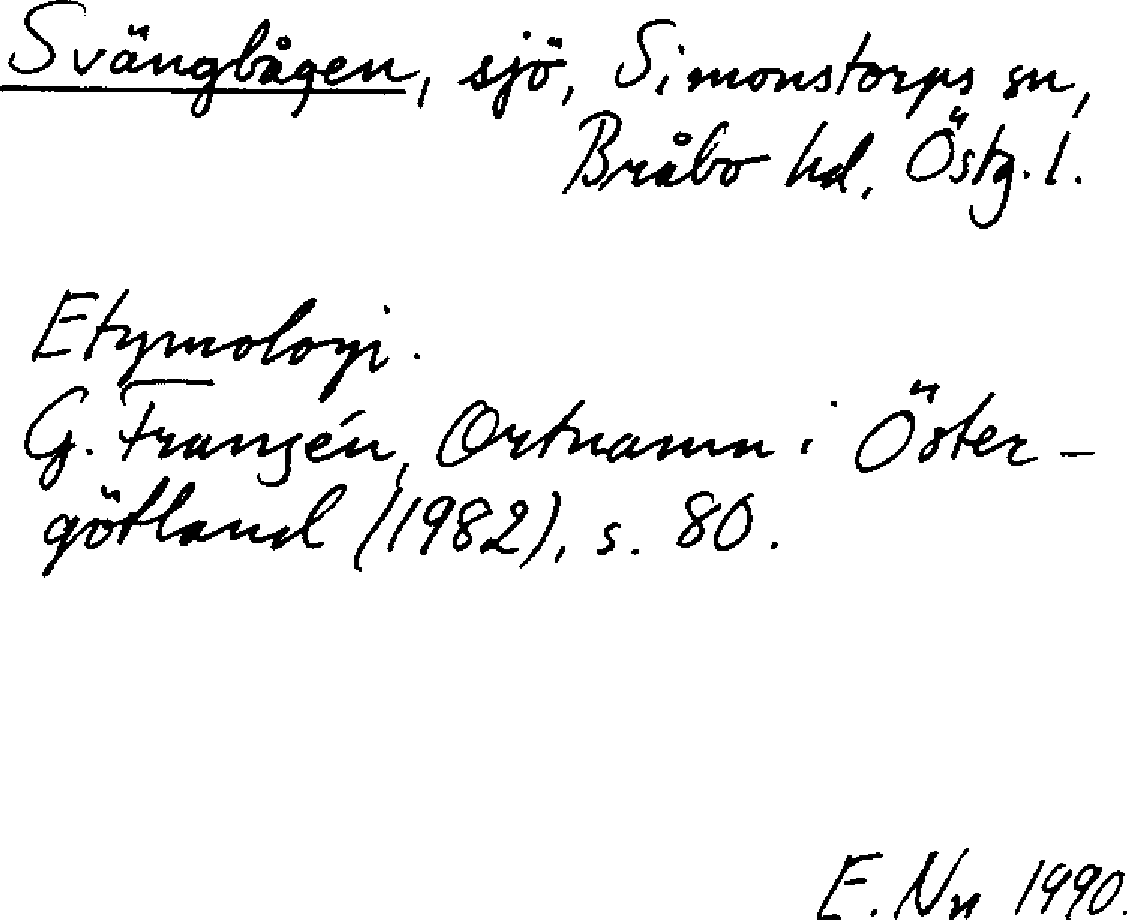 Svängbågen, sjö, Simonstorps sn,
Bråbo hd, Östg. l.
Etymologi.
G. Franzén, Ortnamn i Öster-
götland (1982), s. 80.
E. Nn 1990.